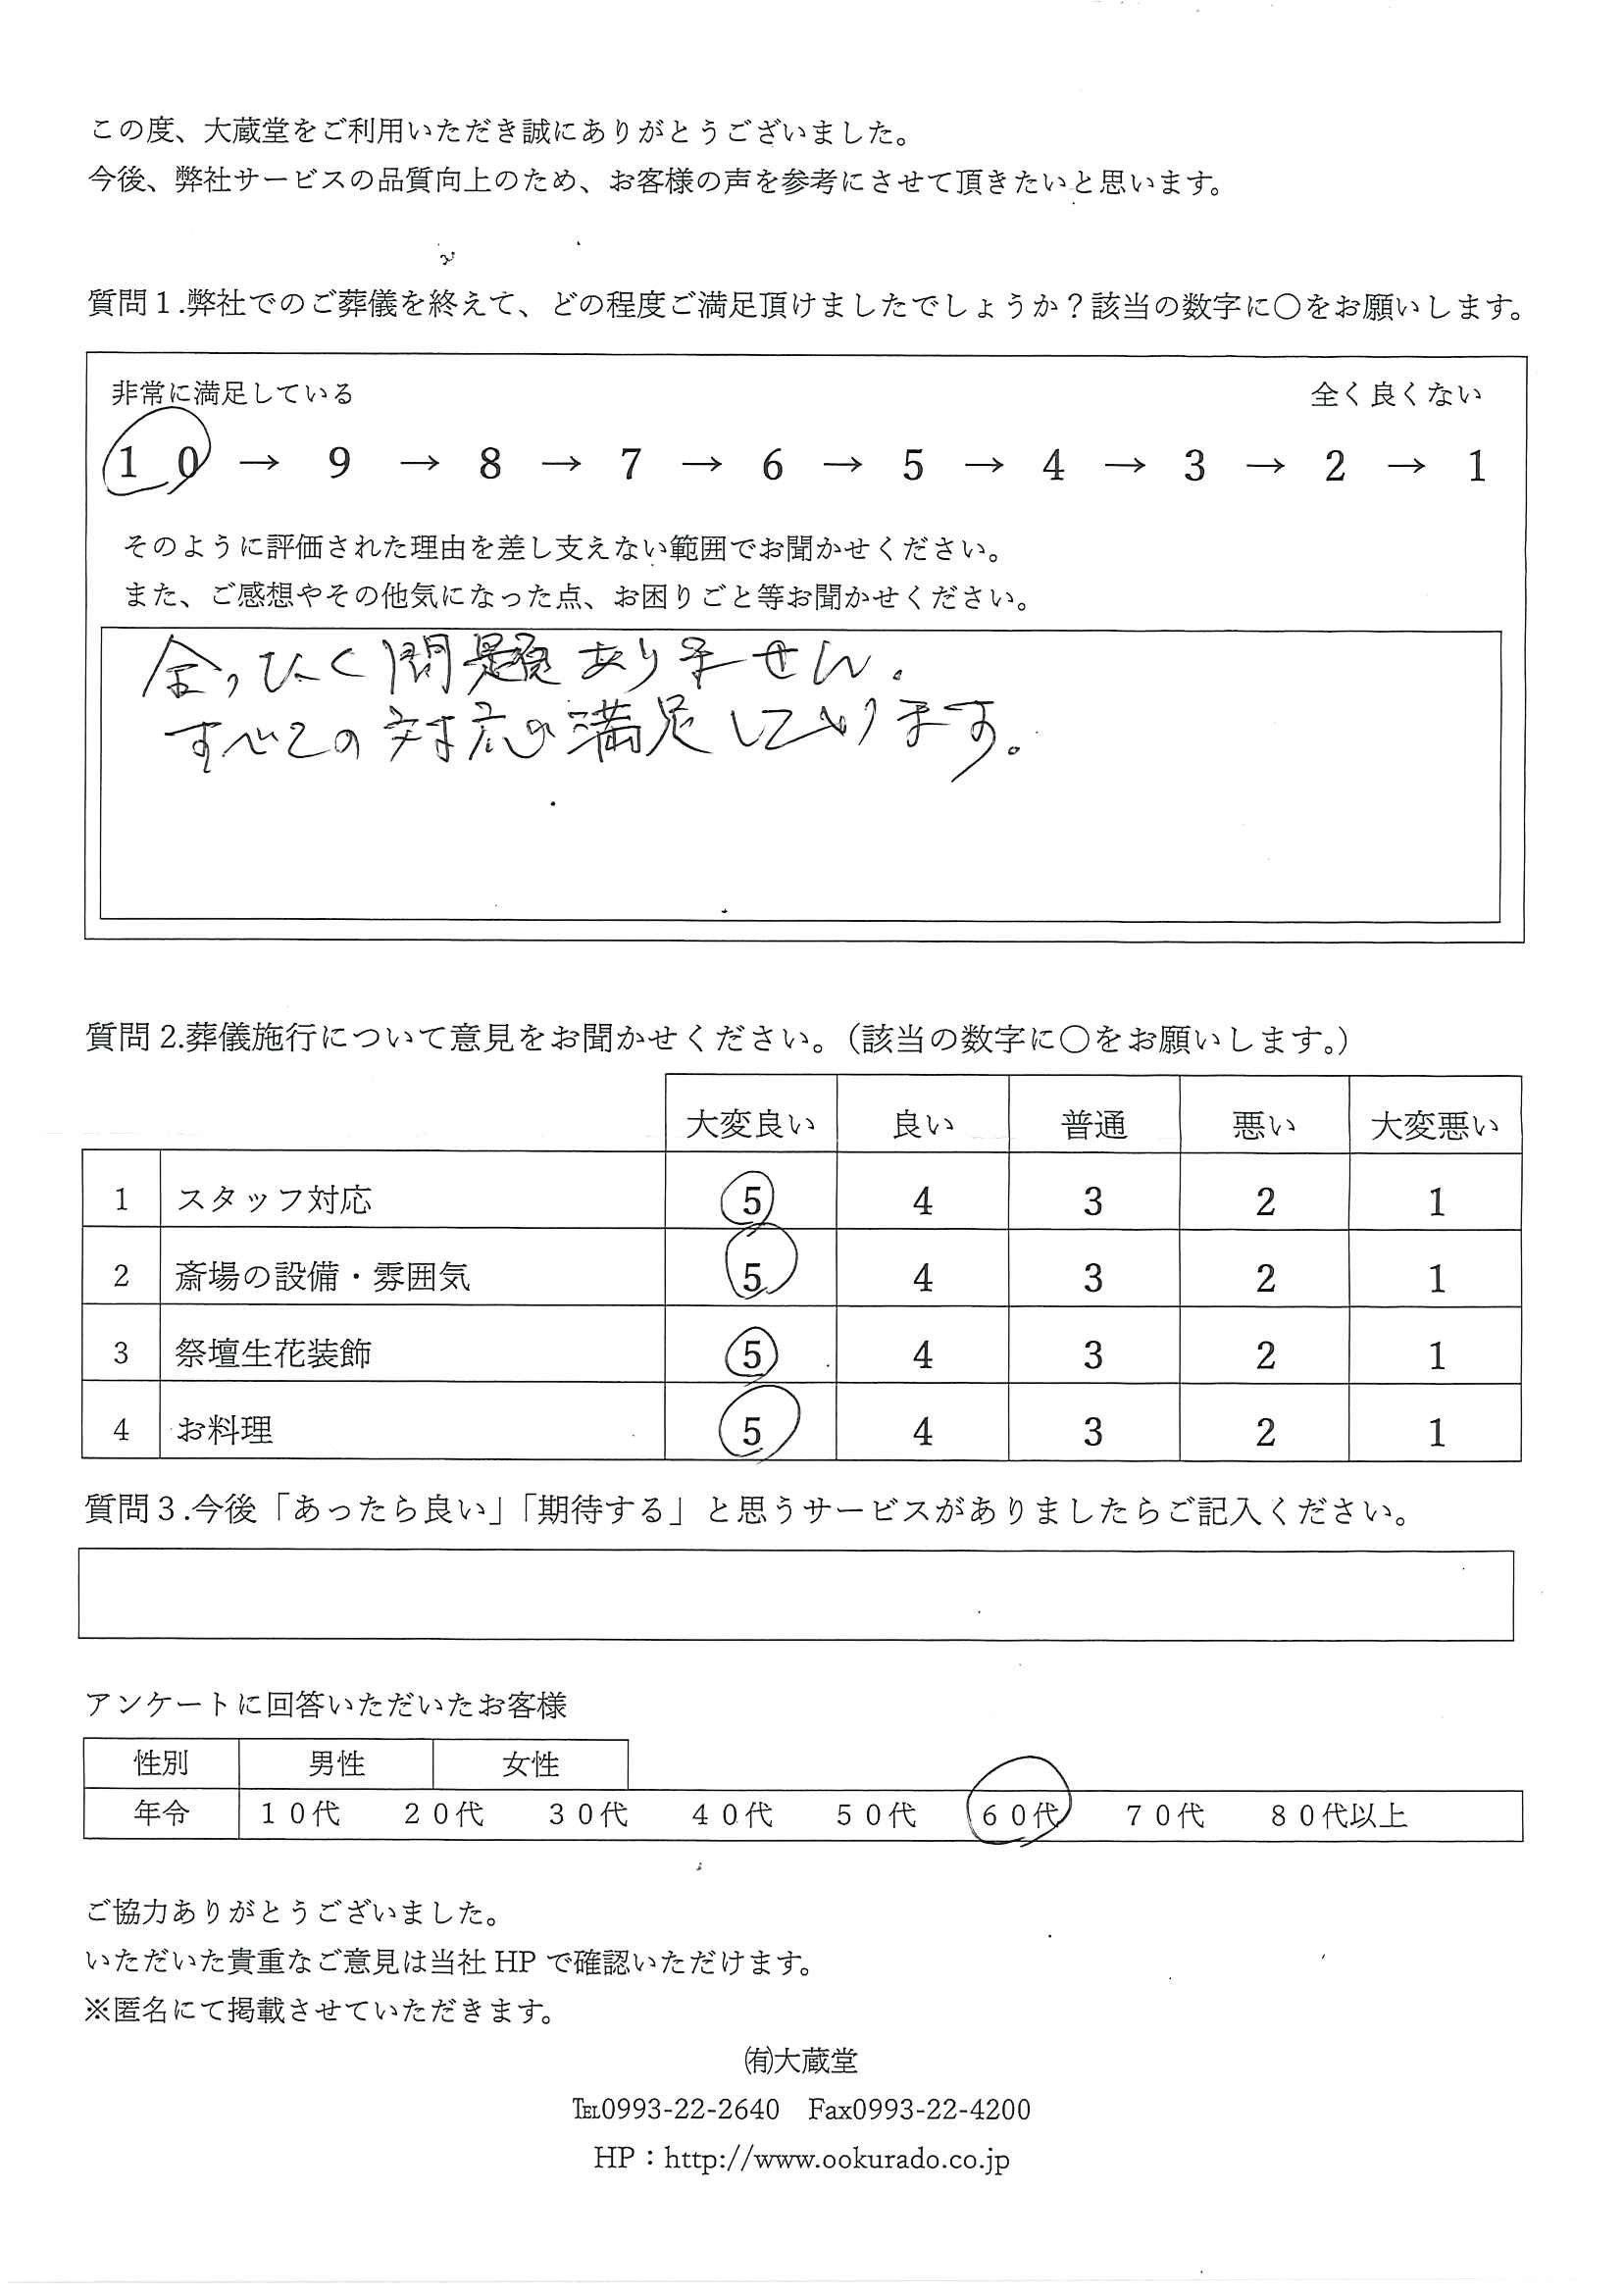 この度、大蔵堂をご利用いただき誠にありがとうございました。
今後、弊社サービスの品質向上のため、お客様の声を参考にさせて頂きたいと思います。
質問１.弊社でのご葬儀を終えて、どの程度ご満足頂けましたでしょうか？該当の数字に〇をお願いします。
非常に満足している 全く良くない
１０ → 9 → 8 → 7 → 6 → 5 → 4 → 3 → 2 → 1
そのように評価された理由を差し支えない範囲でお聞かせください。
また、ご感想やその他気になった点、お困りごと等お聞かせください。
問題ありません。
すべての対応満足しております。
質問 2.葬儀施行について意見をお聞かせください。（該当の数字に〇をお願いします。）
大変良い 良い 普通 悪い 大変悪い
1 スタッフ対応 5 4 3 2 1
2 斎場の設備・雰囲気 5 4 3 2 1
3 祭壇生花装飾 5 4 3 2 1
4 お料理 5 4 3 2 1
質問３.今後「あったら良い」「期待する」と思うサービスがありましたらご記入ください。
アンケートに回答いただいたお客様
性別 男性 女性
年令 １０代 ２０代 ３０代 ４０代 ５０代 ６０代 ７０代 ８０代以上
ご協力ありがとうございました。
いただいた貴重なご意見は当社 HP で確認いただけます。
※匿名にて掲載させていただきます。
㈲大蔵堂
℡0993-22-2640 Fax0993-22-4200
HP：http://www.ookurado.co.jp